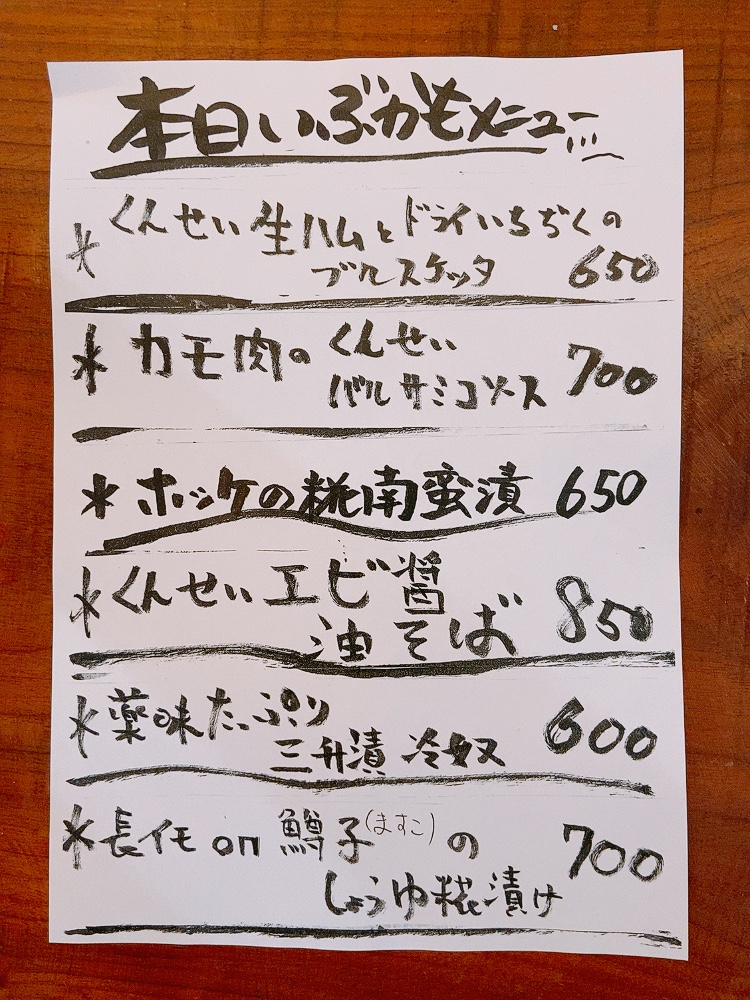 本日いぶかもメニュー
* くんせい生ハムとドライいちぢくの
ブルスケッタ 650
* カモ肉の くんせい
バルサミコソース 700
* ホッケの糀南蛮漬 650
* くんせいエビ醤
油そば 850
* 薬味たっぷり
三升漬 冷奴 600
* 長イモon鱒子(ますこ)の 700
しょうゆ糀漬け